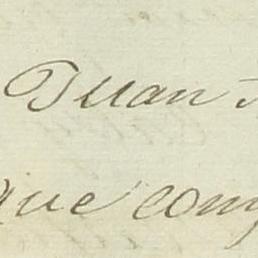 Juan
que com